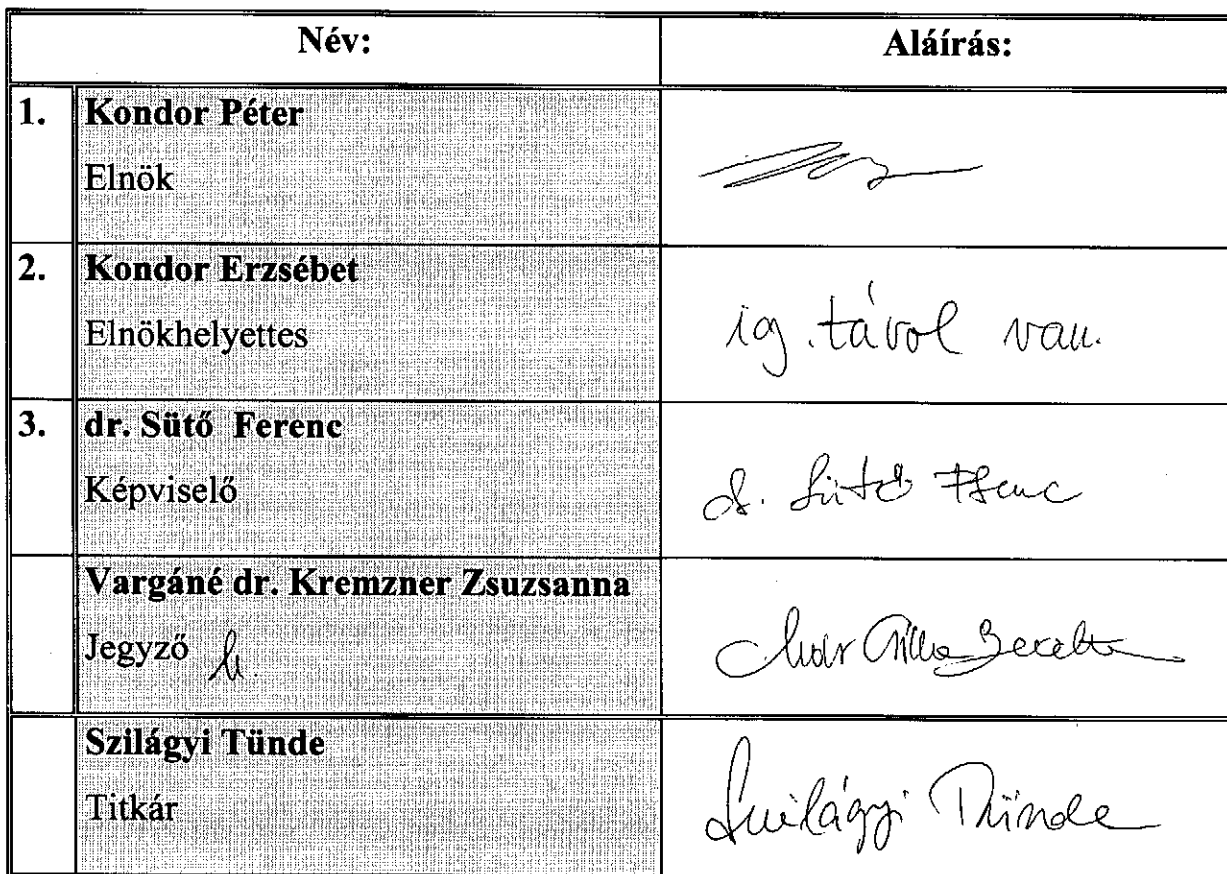 Név: Aláírás:
1. Kondor Péter
Elnök
2. Kondor Erzsébet
Elnökhelyettes ig. távol van.
3. dr. Sütő Ferenc
Képviselő d. Sütő Ferenc
Vargáné dr. Kremzner Zsuzsanna
Jegyző h.
Szilágyi Tünde
Titkár Szilágyi Tünde